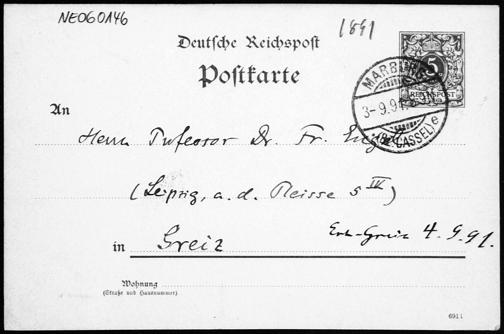 NEO60A46
1891
Deutsche Reichspost
Postkarte
MARBURG
5
REICHSPOST
3-9.91.
(BZ.CASSEL) e
An
Herrn Professor Dr. Fr.
(Leipzig, a. d. Pleisse 5 IV)
in Greiz
Greiz 4. 9. 91.
Wohnung
(Straße und Hausnummer)
6911